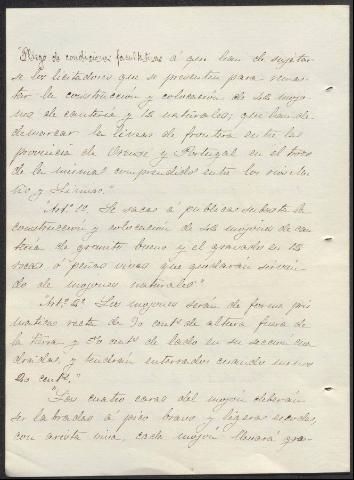 "Pliego de condiciones facultativas á que han de sujetar-
se los licitadores que se presenten para rema-
tar la construcción y colocación de 45 mojo-
nes de cantería y 15 naturales, que han de
demarcar la línea de frontera entre la
provincia de Orense y Portugal en el trozo
de la misma comprendido entre los ríos
y
"Artº 1º Se saca á pública subasta la
construcción y colocación de 45 mojones de can-
tería de granito bueno y el gravado en 15
rocas ó peñas vivas que quedarán sirvien-
do de mojones naturales."
"Artº 2º Los mojones serán de forma pris
mática recta de 90 centˢ de altura fuera de
la tierra, y 50 centˢ de lado en su sección cua
drada, y tendrán enterrados cuando menos
centˢ."
"Las cuatro caras del mojón deberán
ser labradas á pico bravo y ligeras escodas,
con arista viva, cada mojón llevará gra-